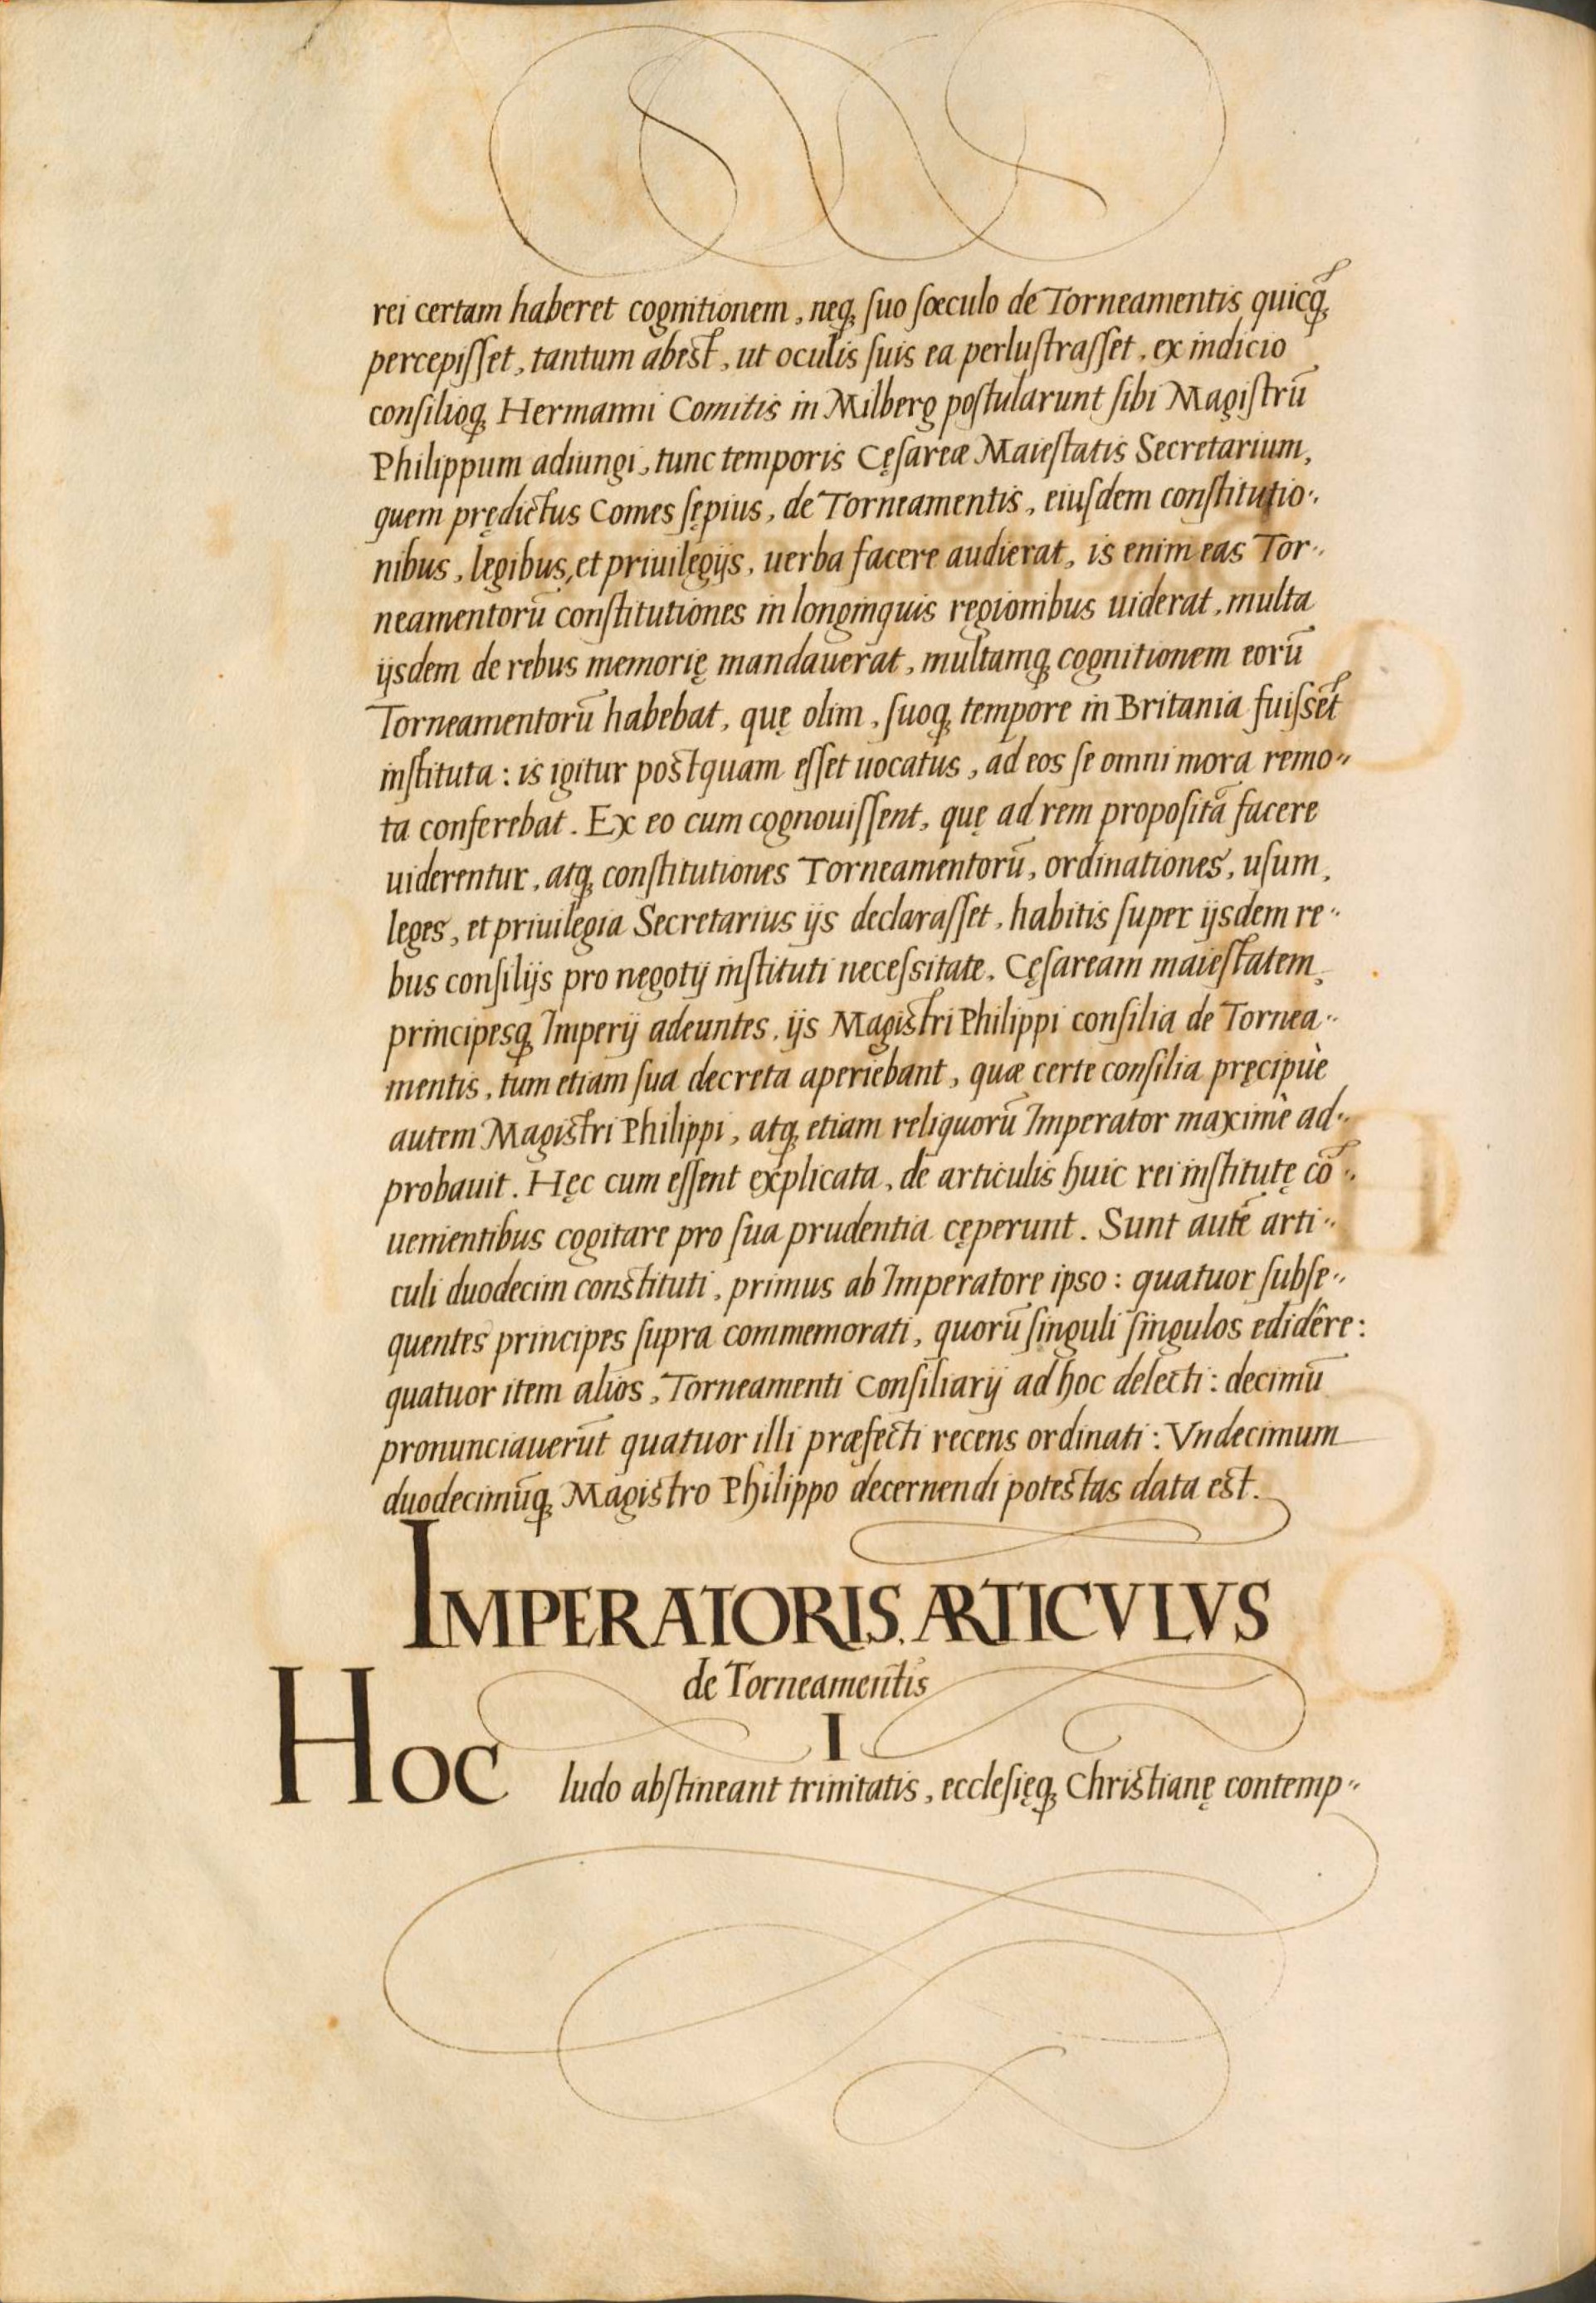 rei certam haberet cognitionem, neq; ſuo ſœculo de Torneamentis quicq̃;
percepiſſet, tantum abest, ut oculis ſuis ea perluſtraſſet, ex indicio
conſilioq; Hermanni Comitis in Milberg poſtularunt ſibi Magiſtrū
Philippum adiungi, tunc temporis Cęſareæ Maieſtatis Secretarium,
quem prędictus Comes ſępius, de Torneamentis, eiuſdem conſtitutio-
nibus, legibus, et priuilegijs, uerba facere audierat, is enim eas Tor-
neamentorū conſtitutiones in longinquis regionibus uiderat, multa
ijsdem de rebus memorię mandauerat, multamq; cognitionem eorū
Torneamentorū habebat, quę olim, ſuoq; tempore in Britania fuiſsēt
inſtituta: is igitur postquam eſſet uocatus, ad eos ſe omni mora remo-
ta conferebat. Ex eo cum cognouiſſent, quę ad rem propoſitā facere
uiderentur, atq; conſtitutiones Torneamentorū, ordinationes, uſum,
leges, et priuilegia Secretarius ijs declaraſſet, habitis ſuper ijsdem re-
bus conſilijs pro negotij inſtituti neceſsitate. Cęſaream maiestatem,
principesq; Imperij adeuntes, ijs Magistri Philippi conſilia de Tornea-
mentis, tum etiam ſua decreta aperiebant, quæ certe conſilia pręcipuè
autem Magistri Philippi, atq; etiam reliquorū Imperator maximè ad-
probauit. Hęc cum eſſent explicata, de articulis huic rei inſtitutę cō-
uenientibus cogitare pro ſua prudentia cęperunt. Sunt autē arti-
culi duodecim constituti, primus ab Imperatore ipso: quatuor ſubſe-
quentes principes ſupra commemorati, quorū ſinguli ſingulos edidêre:
quatuor item alios, Torneamenti Conſiliarij ad hoc delecti: decimū
pronunciauerūt quatuor illi præfecti recens ordinati: Vndecimum
duodecimūq; Magistro Philippo decernendi potestas data est.
IMPERATORIS. ARTICVLVS
de Torneamentis
I
HOC ludo abſtineant trinitatis, eccleſięq; Christianę contemp-